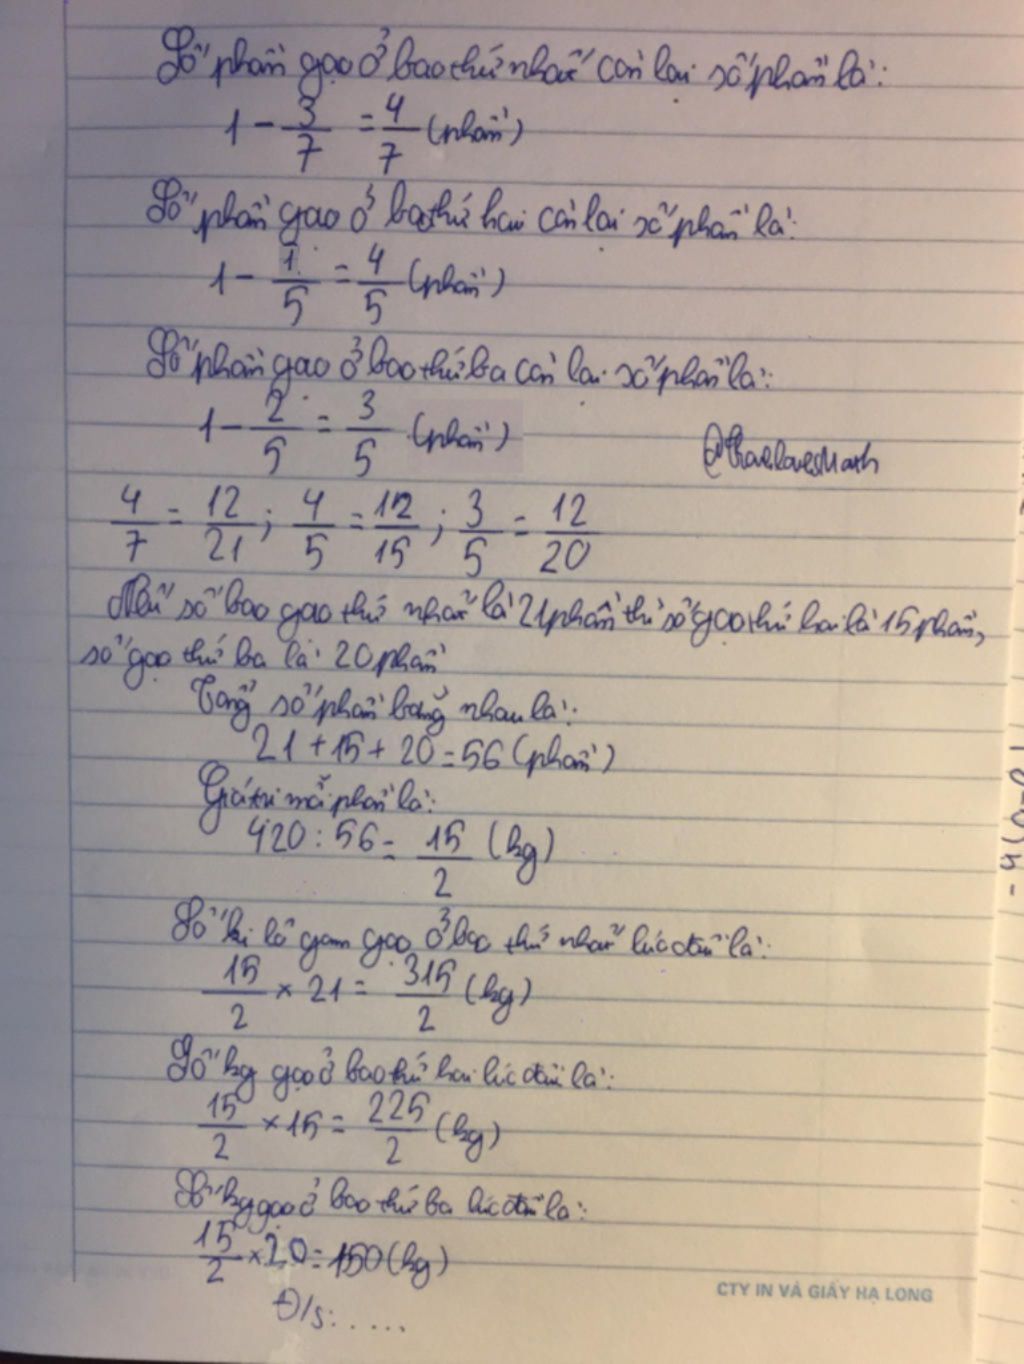 Số phần gạo ở bao thứ nhất còn lại số phần là:
1 - 3/7 = 4/7 (phần)
Số phần gạo ở bao thứ hai còn lại số phần là:
1 - 1/5 = 4/5 (phần)
Số phần gạo ở bao thứ ba còn lại số phần là:
1 - 2/5 = 3/5 (phần)
4/7 = 12/21 ; 4/5 = 12/15 ; 3/5 = 12/20
Nếu số bao gạo thứ nhất là 21 phần thì số gạo thứ hai là 15 phần,
số gạo thứ ba là 20 phần
Tổng số phần bằng nhau là:
21 + 15 + 20 = 56 (phần)
Giá trị mỗi phần là:
420 : 56 = 15/2 (kg)
Số ki lô gam gạo ở bao thứ nhất lúc đầu là:
15/2 × 21 = 315/2 (kg)
Số kg gạo ở bao thứ hai lúc đầu là:
15/2 × 15 = 225/2 (kg)
Số kg gạo ở bao thứ ba lúc đầu là:
15/2 × 20 = 150 (kg)
Đ/s: .....
CTY IN VÀ GIẤY HẠ LONG